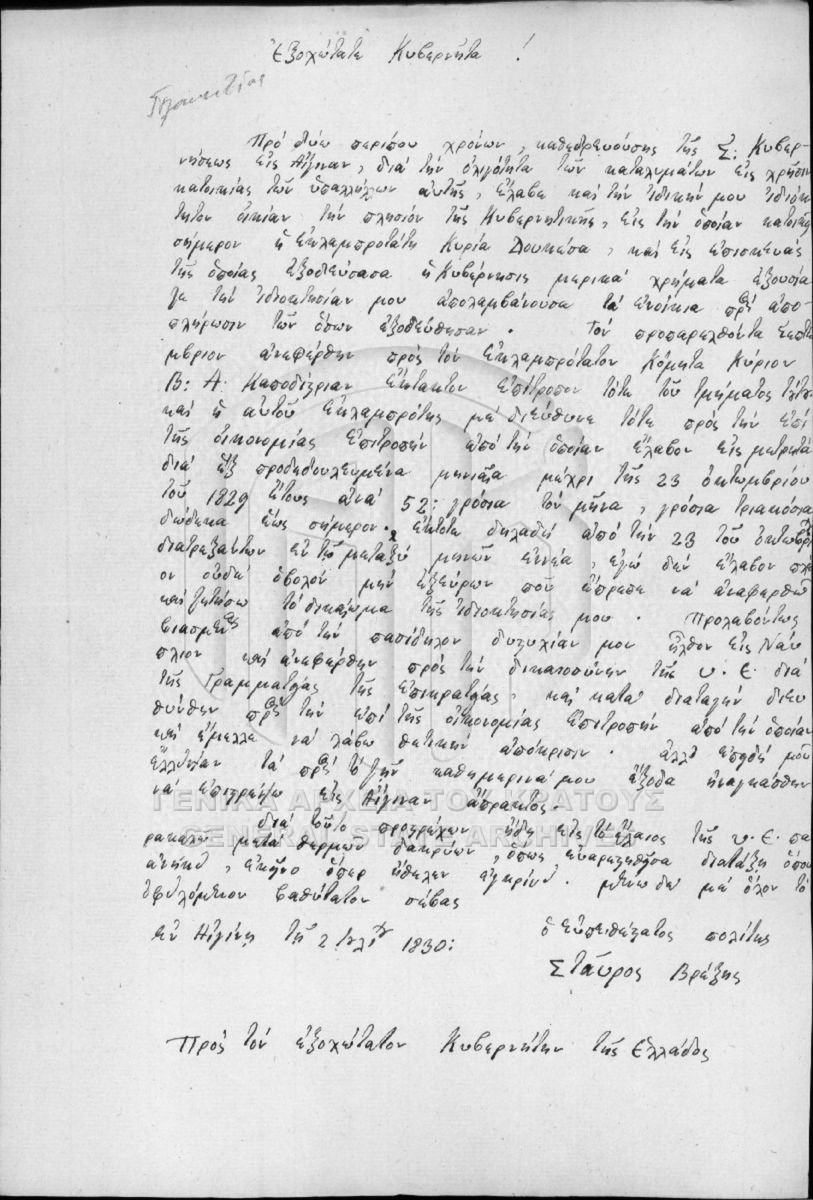 Ἐξοχώτατε Κυβερνῆτα !
Πρὸ δύω περίπου χρόνων, καθεδρευούσης τῆς Σ: Κυβερ-
νήσεως εἰς Αἴγιναν, διὰ τὴν ὀλιγότητα τῶν καταλυμάτων εἰς χρῆσιν
κατοικίας τῶν ὑπαλλήλων αὐτῆς, ἔλαβε καὶ τὴν ἰδικήν μου ἰδιόκ
τητον οἰκίαν τὴν πλησίον τῆς Κυβερνητικῆς, εἰς τὴν ὁποίαν κατοικεῖ
σήμερον ἡ ἐκλαμπροτάτη Κυρία Δουκέσα, καὶ εἰς ἐπισκευὰς
τῆς ὁποίας ἐξοδεύσασα ἡ Κυβέρνησις μερικὰ χρήματα ἐξουσία
ζε τὴν ἰδιοκτησίαν μου ἀπολαμβάνουσα τὰ ἐνοίκια πρὸς ἀπο-
πλήρωσιν τῶν ὅσων ἐξοδεύθησαν. Τὸν προπαρελθόντα Σεπτέ
μβριον ἀνεφέρθην πρὸς τὸν ἐκλαμπρότατον Κόμητα Κύριον
Β: Α. Καποδίστριαν ἔκτακτον ἐπίτροπον τότε τοῦ τμήματος
καὶ ἡ αὐτοῦ ἐκλαμπρότης μὲ διεύθυνε τότε πρὸς τὴν ἐπὶ
τῆς οἰκονομίας ἐπιτροπὴν ἀπὸ τὴν ὁποίαν ἔλαβον εἰς μετρητὰ
διὰ ἓξ προδεδουλευμένα μηνιαῖα μέχρι τῆς 23 ὀκτωμβρίου
τοῦ 1829 ἔτους ἀνὰ 52: γρόσια τὸν μῆνα, γρόσια τριακόσια
δώδεκα ἕως σήμερον. ἔκτοτε δηλαδὴ ἀπὸ τὴν 23 τοῦ ὀκτωβρί
διατρεξάντων ἐν τῷ μεταξὺ μηνῶν ἐννέα, ἐγὼ δὲν ἔλαβον πλέ
ον οὐδὲ ὀβολὸν μὴν ἐξεύρων ποῦ ἔπρεπε νὰ ἀναφερθῶ
καὶ ζητήσω τὸ δικαίωμα τῆς ἰδιοκτησίας μου. Προλαβόντως
βιασμένος ἀπὸ τὴν πασίδηλον δυστυχίαν μου ἦλθον εἰς Ναύ
πλιον καὶ ἀνεφέρθην πρὸς τὴν δικαιοσύνην τῆς υ. Ε. διὰ
τῆς Γραμματείας τῆς ἐπικρατείας, καὶ κατὰ διαταγὴν διευ
θύνθην πρὸς τὴν ἐπὶ τῆς οἰκονομίας ἐπιτροπὴν ἀπὸ τὴν ὁποίαν
καὶ ἔμελλα νὰ λάβω θετικὴν ἀπόκρισιν. ἀλλ' ἐπειδή μοῦ
ἔλλειψαν τὰ πρὸς τὸ ζῆν καθημερινά μου ἔξοδα ἠναγκάσθην
νὰ ἐπιστρέψω εἰς Αἴγιναν ἄπρακτος.
διὰ τοῦτο προστρέχων ἤδη εἰς τὸ ἔλεος τῆς υ. Ε. πα
ρακαλῶ μετὰ θερμῶν δακρύων, ὅπως εὐαρεστηθεῖσα διατάξῃ ὅπου
ἀνήκει, ἐκεῖνο ὅπερ ἤθελεν ἐγκρίνει. μένω δὲ μὲ ὅλον τὸ
ὀφειλόμενον βαθύτατον σέβας
ἐν Αἰγίνῃ τῆς 2 Ἰουλίου 1830:
ὁ εὐπειθέστατος πολίτης
Σταῦρος Βρέξης
Πρὸς τὸν ἐξοχώτατον Κυβερνήτην τῆς Ἑλλάδος
ΓΕΝΙΚΑ ΑΡΧΕΙΑ ΤΟΥ ΚΡΑΤΟΥΣ
GENERAL STATE ARCHIVES